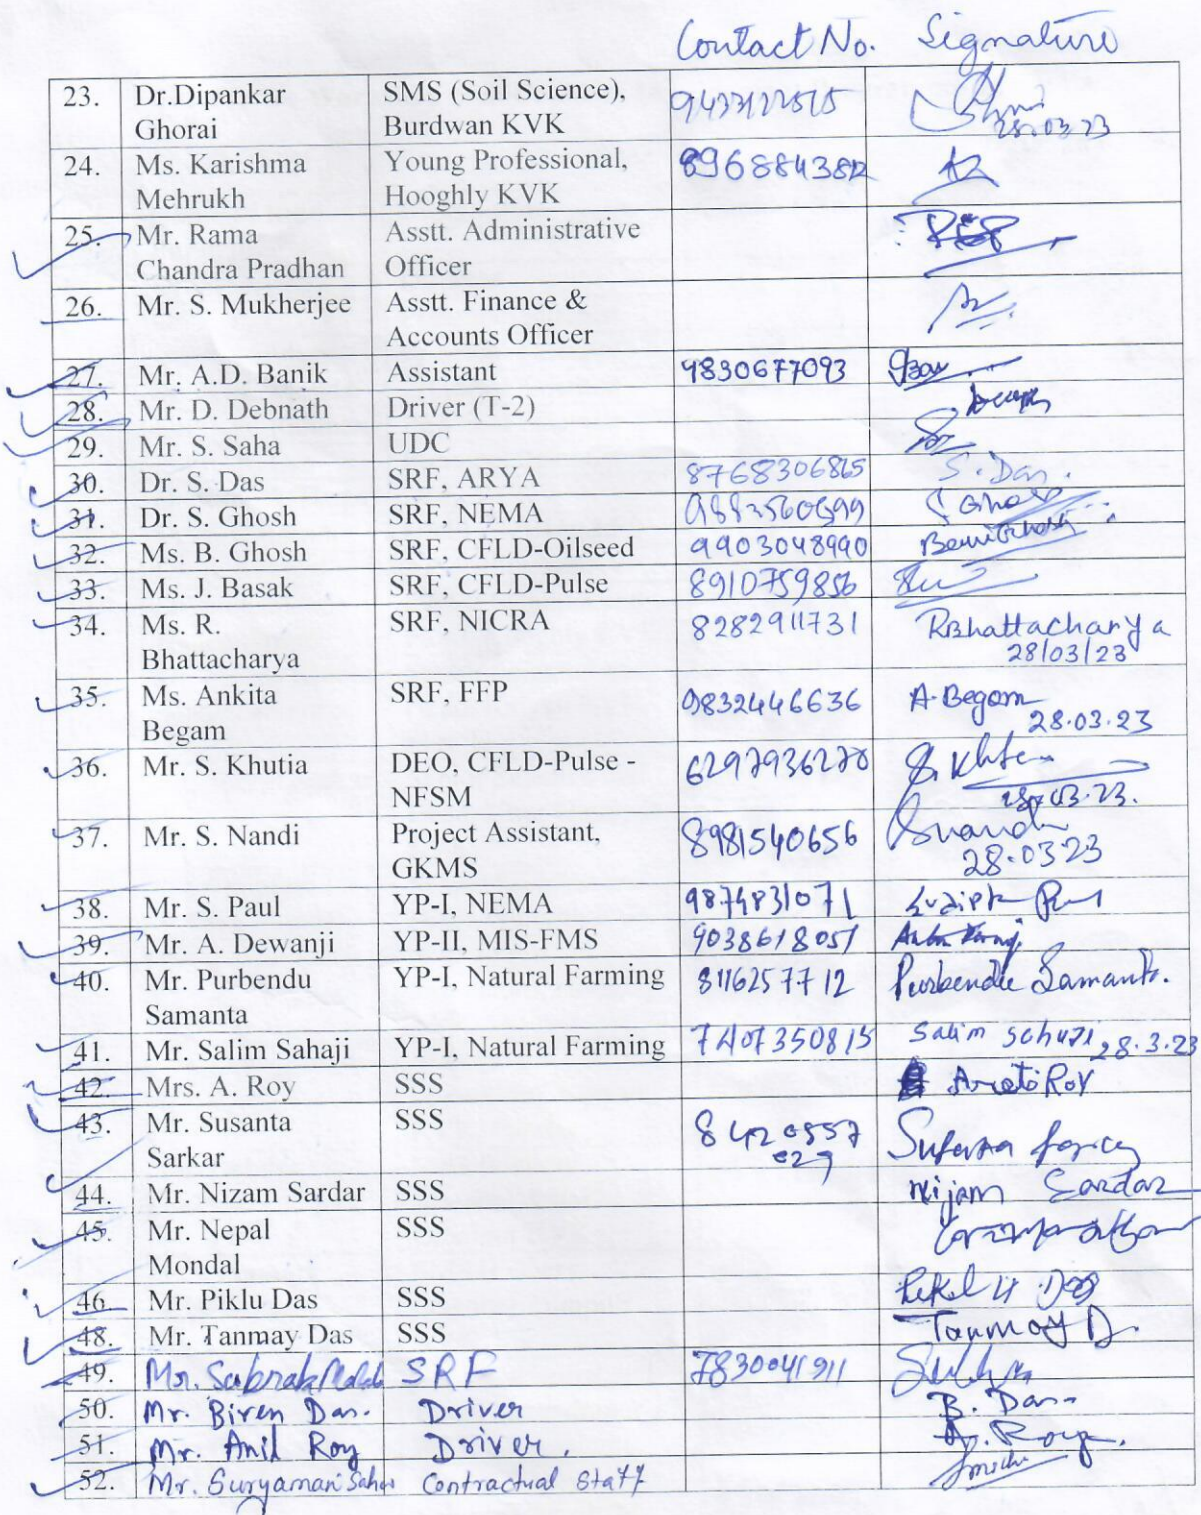 Contact No. Signature
23. Dr.Dipankar Ghorai SMS (Soil Science), Burdwan KVK 28.03.23
24. Ms. Karishma Mehrukh Young Professional, Hooghly KVK
25. Mr. Rama Chandra Pradhan Asstt. Administrative Officer
26. Mr. S. Mukherjee Asstt. Finance & Accounts Officer
27. Mr. A.D. Banik Assistant 9830677093
28. Mr. D. Debnath Driver (T-2)
29. Mr. S. Saha UDC
30. Dr. S. Das SRF, ARYA 8768306865 S. Das.
31. Dr. S. Ghosh SRF, NEMA S Ghosh
32. Ms. B. Ghosh SRF, CFLD-Oilseed 9903048990
33. Ms. J. Basak SRF, CFLD-Pulse 8910759856
34. Ms. R. Bhattacharya SRF, NICRA 8282911731 RBhattacharya 28/03/23
35. Ms. Ankita Begam SRF, FFP 9832446636 A. Begam 28.03.23
36. Mr. S. Khutia DEO, CFLD-Pulse - NFSM 28.03.23.
37. Mr. S. Nandi Project Assistant, GKMS 8981540656 28.03 23
38. Mr. S. Paul YP-I, NEMA 9874831071
39. Mr. A. Dewanji YP-II, MIS-FMS 9038618051
40. Mr. Purbendu Samanta YP-I, Natural Farming 8116257712 Purbendu Samanta.
41. Mr. Salim Sahaji YP-I, Natural Farming 7407350815 Salim Sahaji 28.3.23
42. Mrs. A. Roy SSS Arati Roy
43. Mr. Susanta Sarkar SSS 8420557 029
44. Mr. Nizam Sardar SSS Nijam Sardar
45. Mr. Nepal Mondal SSS
46. Mr. Piklu Das SSS
48. Mr. Tanmay Das SSS Tanmoy D.
49. Mr. SRF 7830041911
50. Mr. Biren Das. Driver B. Das
51. Mr. Anil Roy Driver. A. Roy.
52. Mr. Suryaman Contractual Staff